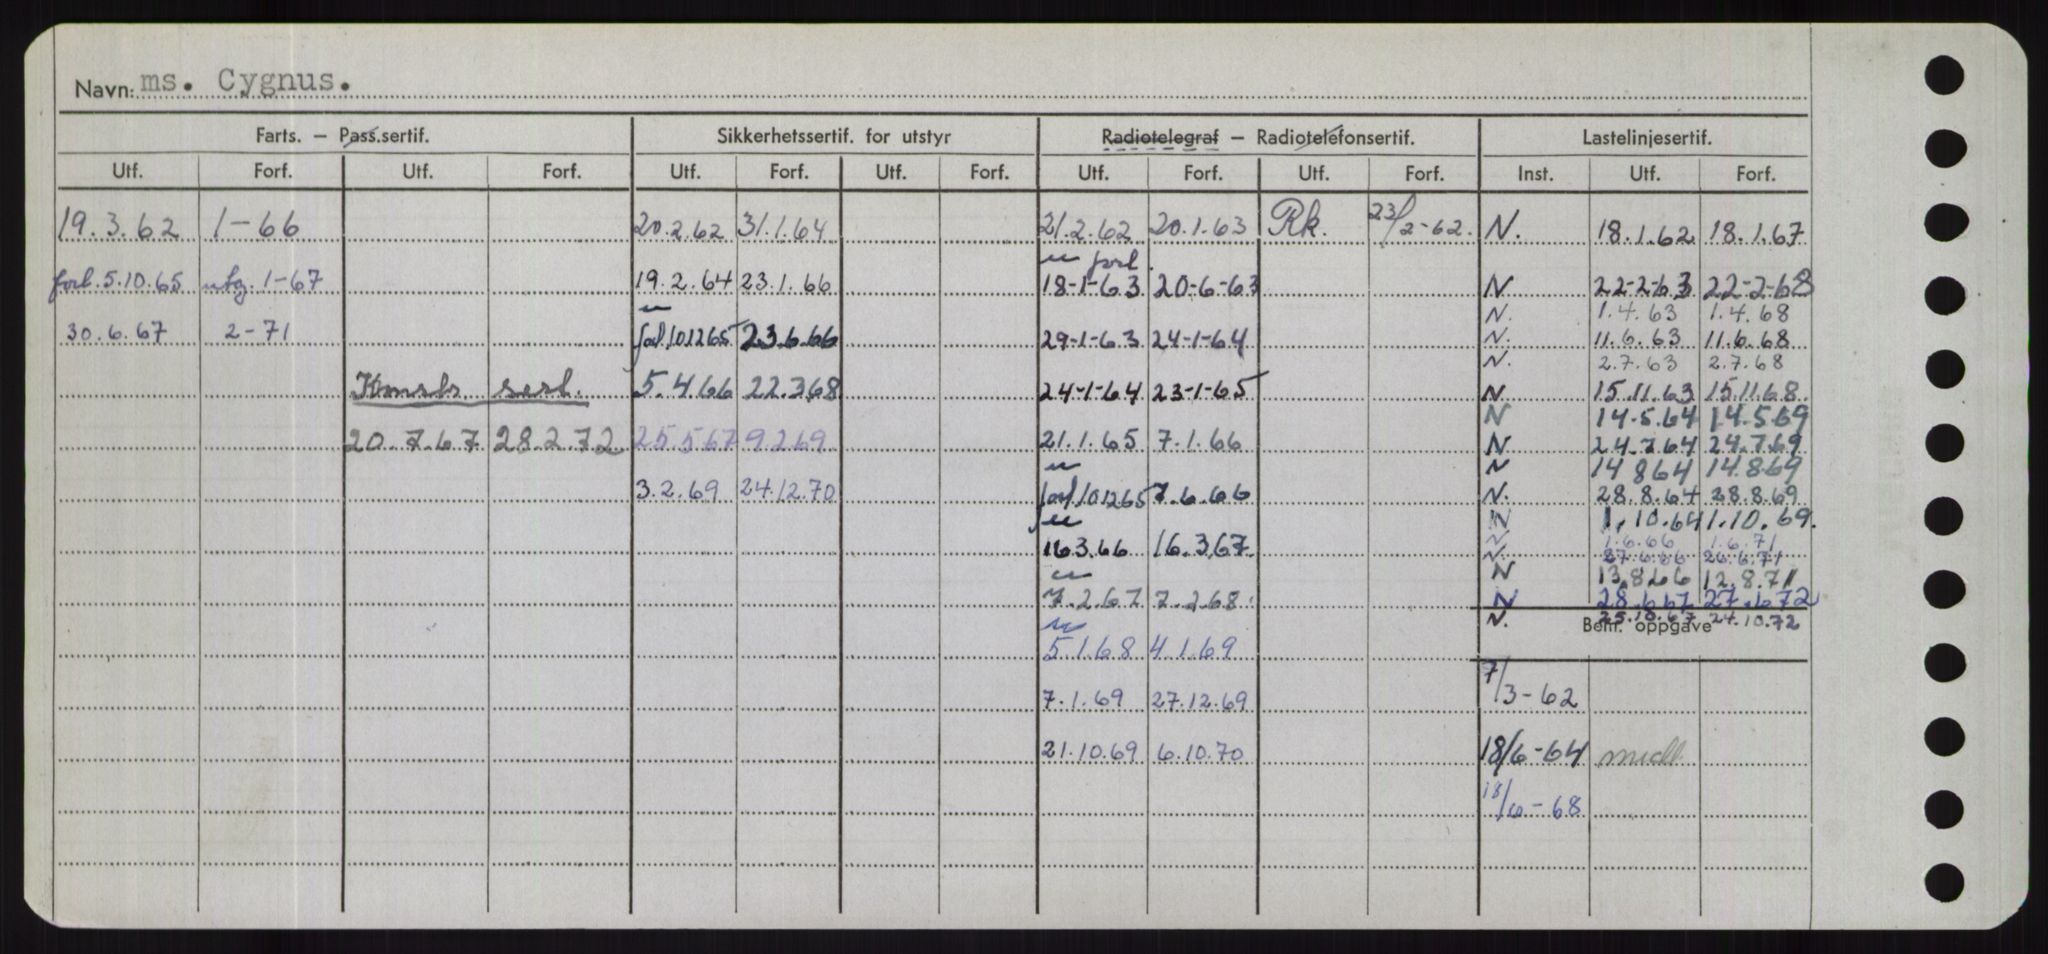 Navn: ms. Cygnus.
Farts. – Pass.sertif. Sikkerhetssertif. for utstyr Radiotelegraf – Radiotelefonsertif. Lastelinjesertif.
Utf. Forf. Utf. Forf. Utf. Forf. Utf. Forf. Utf. Forf. Utf. Forf. Inst. Utf. Forf.
19.3.62 1-66 20.2.62 31.1.64 21.2.62 20.1.63 Rk. 23/2-62. N. 18.1.62 18.1.67
" forl.
forl. 5.10.65 utg. 1-67 19.2.64 23.1.66 18-1-63 20-6-63 N 22-2-63 22-2-68
" N. 1.4.63 1.4.68
30.6.67 2-71 forl 101265 23.6.66 29-1-63 24-1-64 N. 11.6.63 11.6.68
N. 2.7.63 2.7.68
sert. 5.4.66 22.3.68 24-1-64 23-1-65 N 15.11.63 15.11.68.
N 14.5.64 14.5.69
20.7.67 28.2.72 25.5.67 9.2.69 21.1.65 7.1.66 N 24.7.64 24.7.69
" N 14 8 64 14.8.69
3.2.69 24.12.70 forl 101265 7.6.66 N. 28.8.64 28.8.69
" N 1.10.64 1.10.69.
N. 1.6.66 1.6.71
163.66 16.3.67. N. 27.6.66 26.6.71
" N 13.8.66 12.8.71
7.2.67 7.2.68. N 28.6.67 27.6.72
" N. 25.10.67 24.10.72
Bem. oppgave
5.1.68 4.1.69
7/3-62
7.1.69 27.12.69
21.10.69 6.10.70 18/6-64
18/6-68